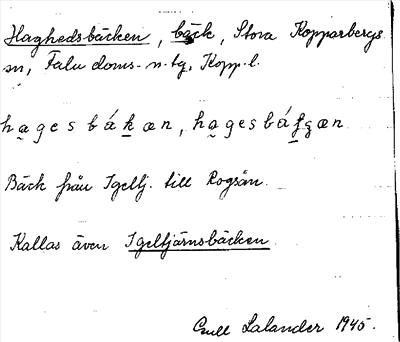 Haghedsbäcken, bäck, Stora Kopparbergs
sn, Falu doms- n. tg, Kopp. l.
hages bákæn, hages báʃʒæn
Bäck från Igeltj. till Rogsån.
Kallas även Igeltjärnsbäcken.
Gull Lalander 1945.